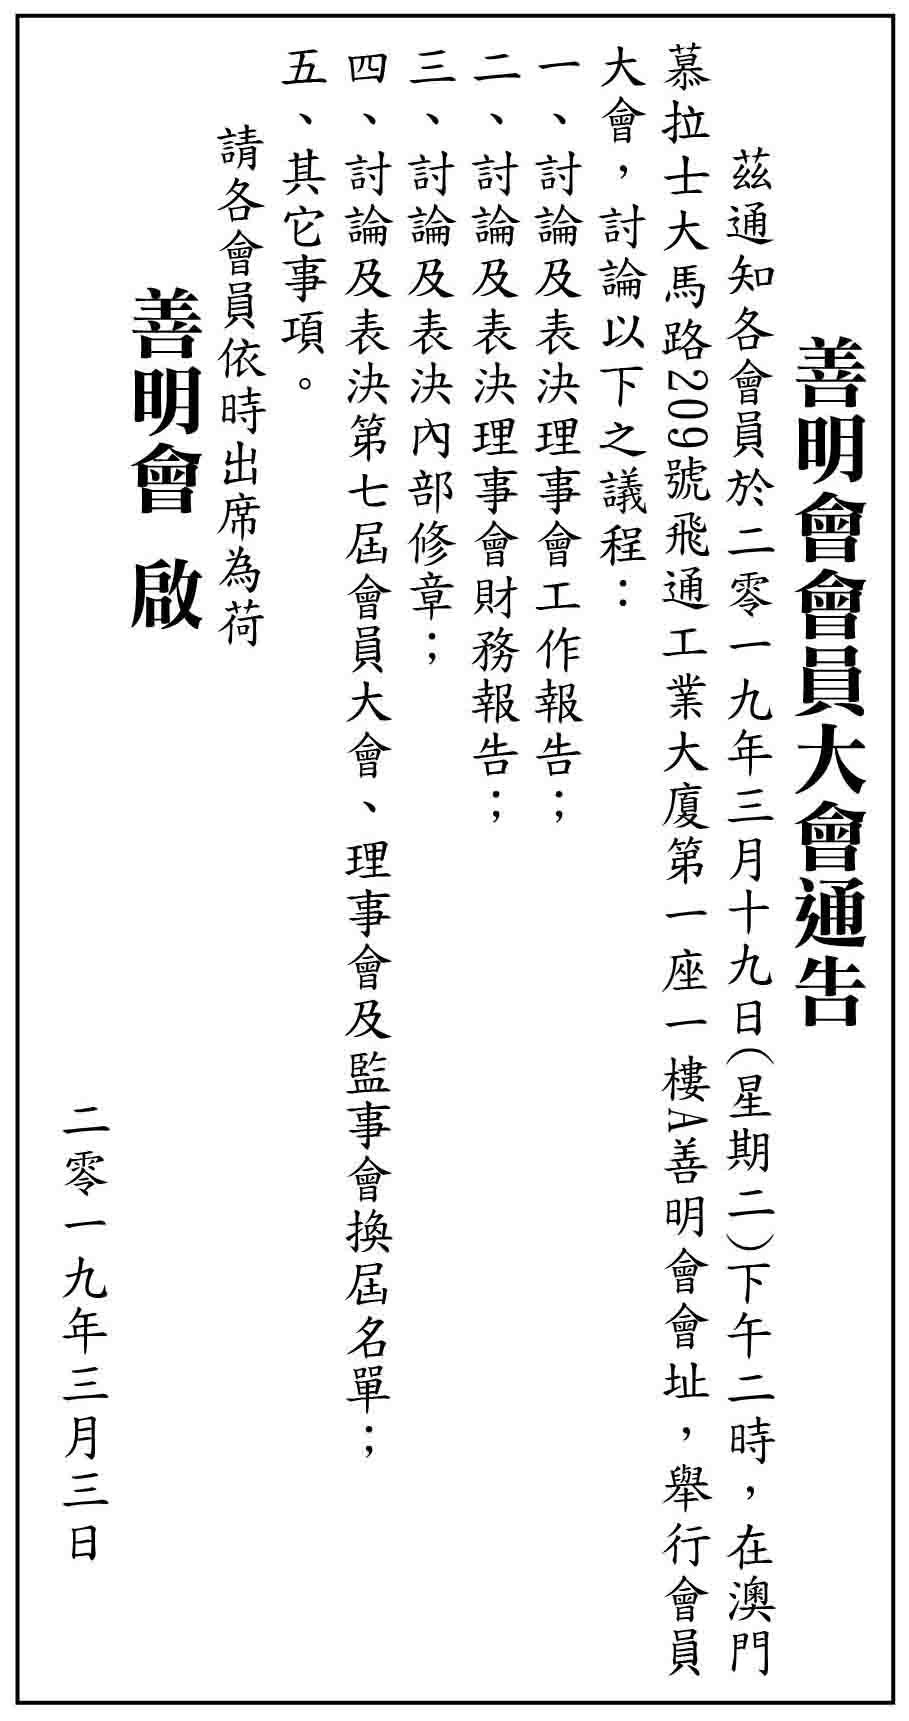 善明會會員大會通告
茲通知各會員於二零一九年三月十九日(星期二)下午二時，在澳門
慕拉士大馬路209號飛通工業大廈第一座一樓A善明會會址，舉行會員
大會，討論以下之議程：
一、討論及表決理事會工作報告；
二、討論及表決理事會財務報告；
三、討論及表決內部修章；
四、討論及表決第七屆會員大會、理事會及監事會換屆名單；
五、其它事項。
請各會員依時出席為荷
善明會 啟
二零一九年三月三日